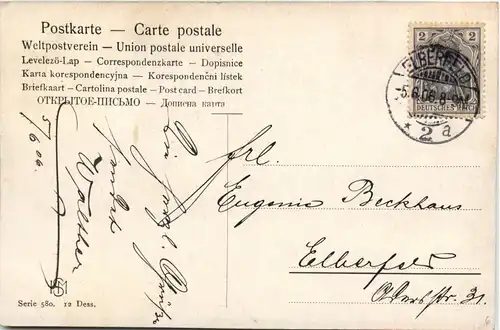 Postkarte — Carte postale
Weltpostverein — Union postale universelle
Levelező-Lap — Correspondenzkarte — Dopisnice
Karta korespondencyjna — Korespondenční lístek
Briefkaart — Cartolina postale — Post card — Brefkort
ОТКРЫТОЕ-ПИСЬМО — Дописна карта
2 2
DEUTSCHES REICH
ELBERFELD
-5.6.06.8-
* 2 a
5/6 06.
sendet
Walther
Frl.
Eugenie Beckhaus
Elberfeld
str. 31.
Serie 580. 12 Dess.